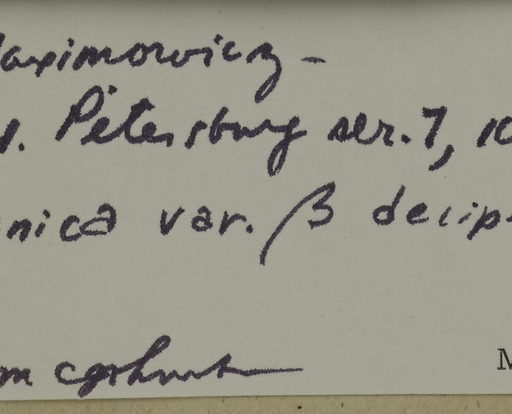 Maximowicz -
. Pétersburg ser. 7, 10
nica var. β decip
M